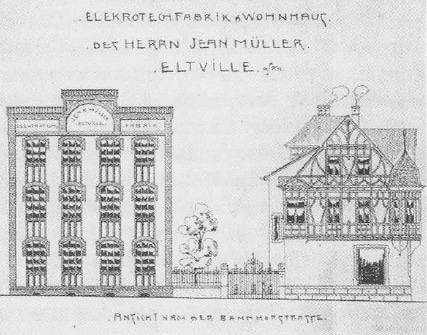 ELEKROTECH.FABRIK & WOHNHAUS.
DES HERRN JEAN MÜLLER.
ELTVILLE.
JEAN MÜLLER
ELTVILLE.
FABRIK
ANSICHT NACH DER BAHNHOFSTRASSE.